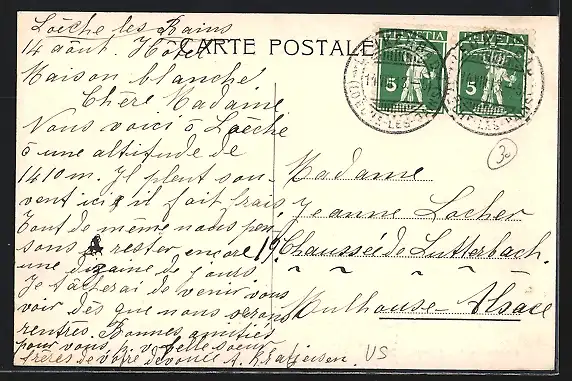 Loèche les Bains
14 août. Hôtel
CARTE POSTALE
Maison blanche
Chère Madame
Nous voici à Loèche
à une altitude de
1410 m. Il pleut sou-
vent ici, il fait frais,
Tout de même nous pen
sons rester encore
une dizaine de jours.
Je tâcherai de venir vous
voir dès que nous serons
rentrés. Bonnes amitiés
pour vous, belle soeur
frères de votre dévouée A.
HELVETIA HELVETIA
5 5
30
Madame
Jeanne Locher
19. Chaussée de Lutterbach.
Mulhouse-Alsace
US